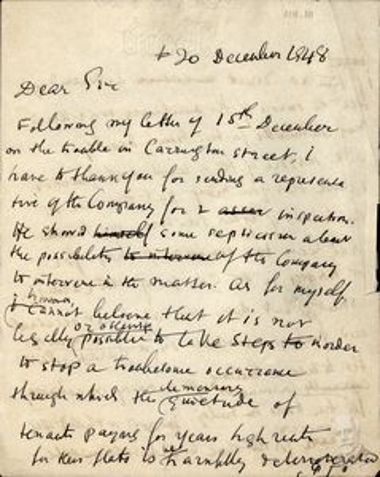 20 December 1948
Dear Sir
Following my letter of 15th December
on the trouble in Carrington street, I
have to thank you for sending a representa
tive of the Company for inspection.
He showed himself some scepticism about
the possibility to intervene of the Company
to intervene in the matter. As for myself,
I however, cannot believe that it is not
legally or otherwise possible to take steps to in order
to stop a troublesome occurrence
through which the quietude of
tenants paying for years high rents
for their flats is harmfully deteriorated